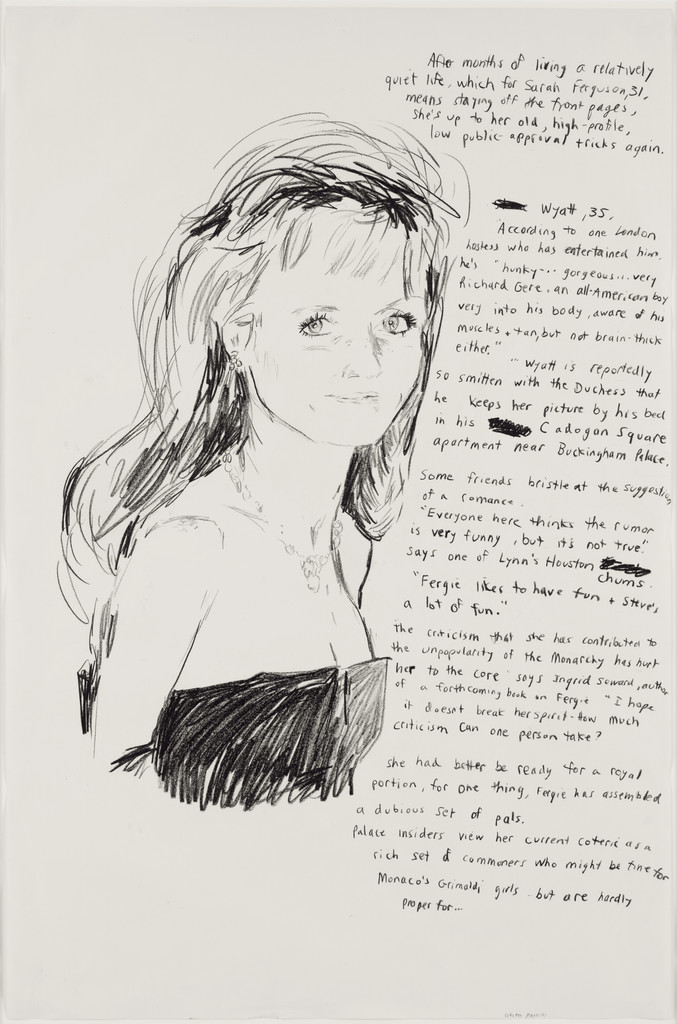 After months of living a relatively
quiet life, which for Sarah Ferguson, 31,
means staying off the front pages,
she's up to her old, high-profile,
low public-approval tricks again.
Wyatt, 35,
"According to one London
hostess who has entertained him,
he's "hunky... gorgeous... very
Richard Gere, an all-American boy
very into his body, aware of his
muscles + tan, but not brain-thick
either." "Wyatt is reportedly
so smitten with the Duchess that
he keeps her picture by his bed
in his Cadogan Square
apartment near Buckingham Palace.
Some friends bristle at the suggestion
of a romance.
"Everyone here thinks the rumor
is very funny, but it's not true"
says one of Lynn's Houston
chums.
"Fergie likes to have fun + Steve's
a lot of fun."
The criticism that she has contributed to
the unpopularity of the Monarchy has hurt
her to the core" says Ingrid Seward, author
of a forthcoming book on Fergie "I hope
it doesnt break her spirit-How much
criticism can one person take?
she had better be ready for a royal
portion, for one thing, Fergie has assembled
a dubious set of pals.
Palace insiders view her current coterie as a
rich set of commoners who might be fine for
Monaco's Grimaldi girls - but are hardly
proper for...